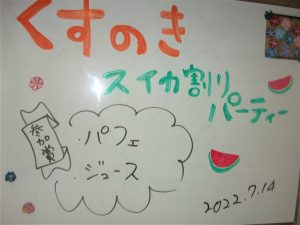 くすのき
スイカ割り
パーティー
参加賞
・パフェ
・ジュース
2022.7.14